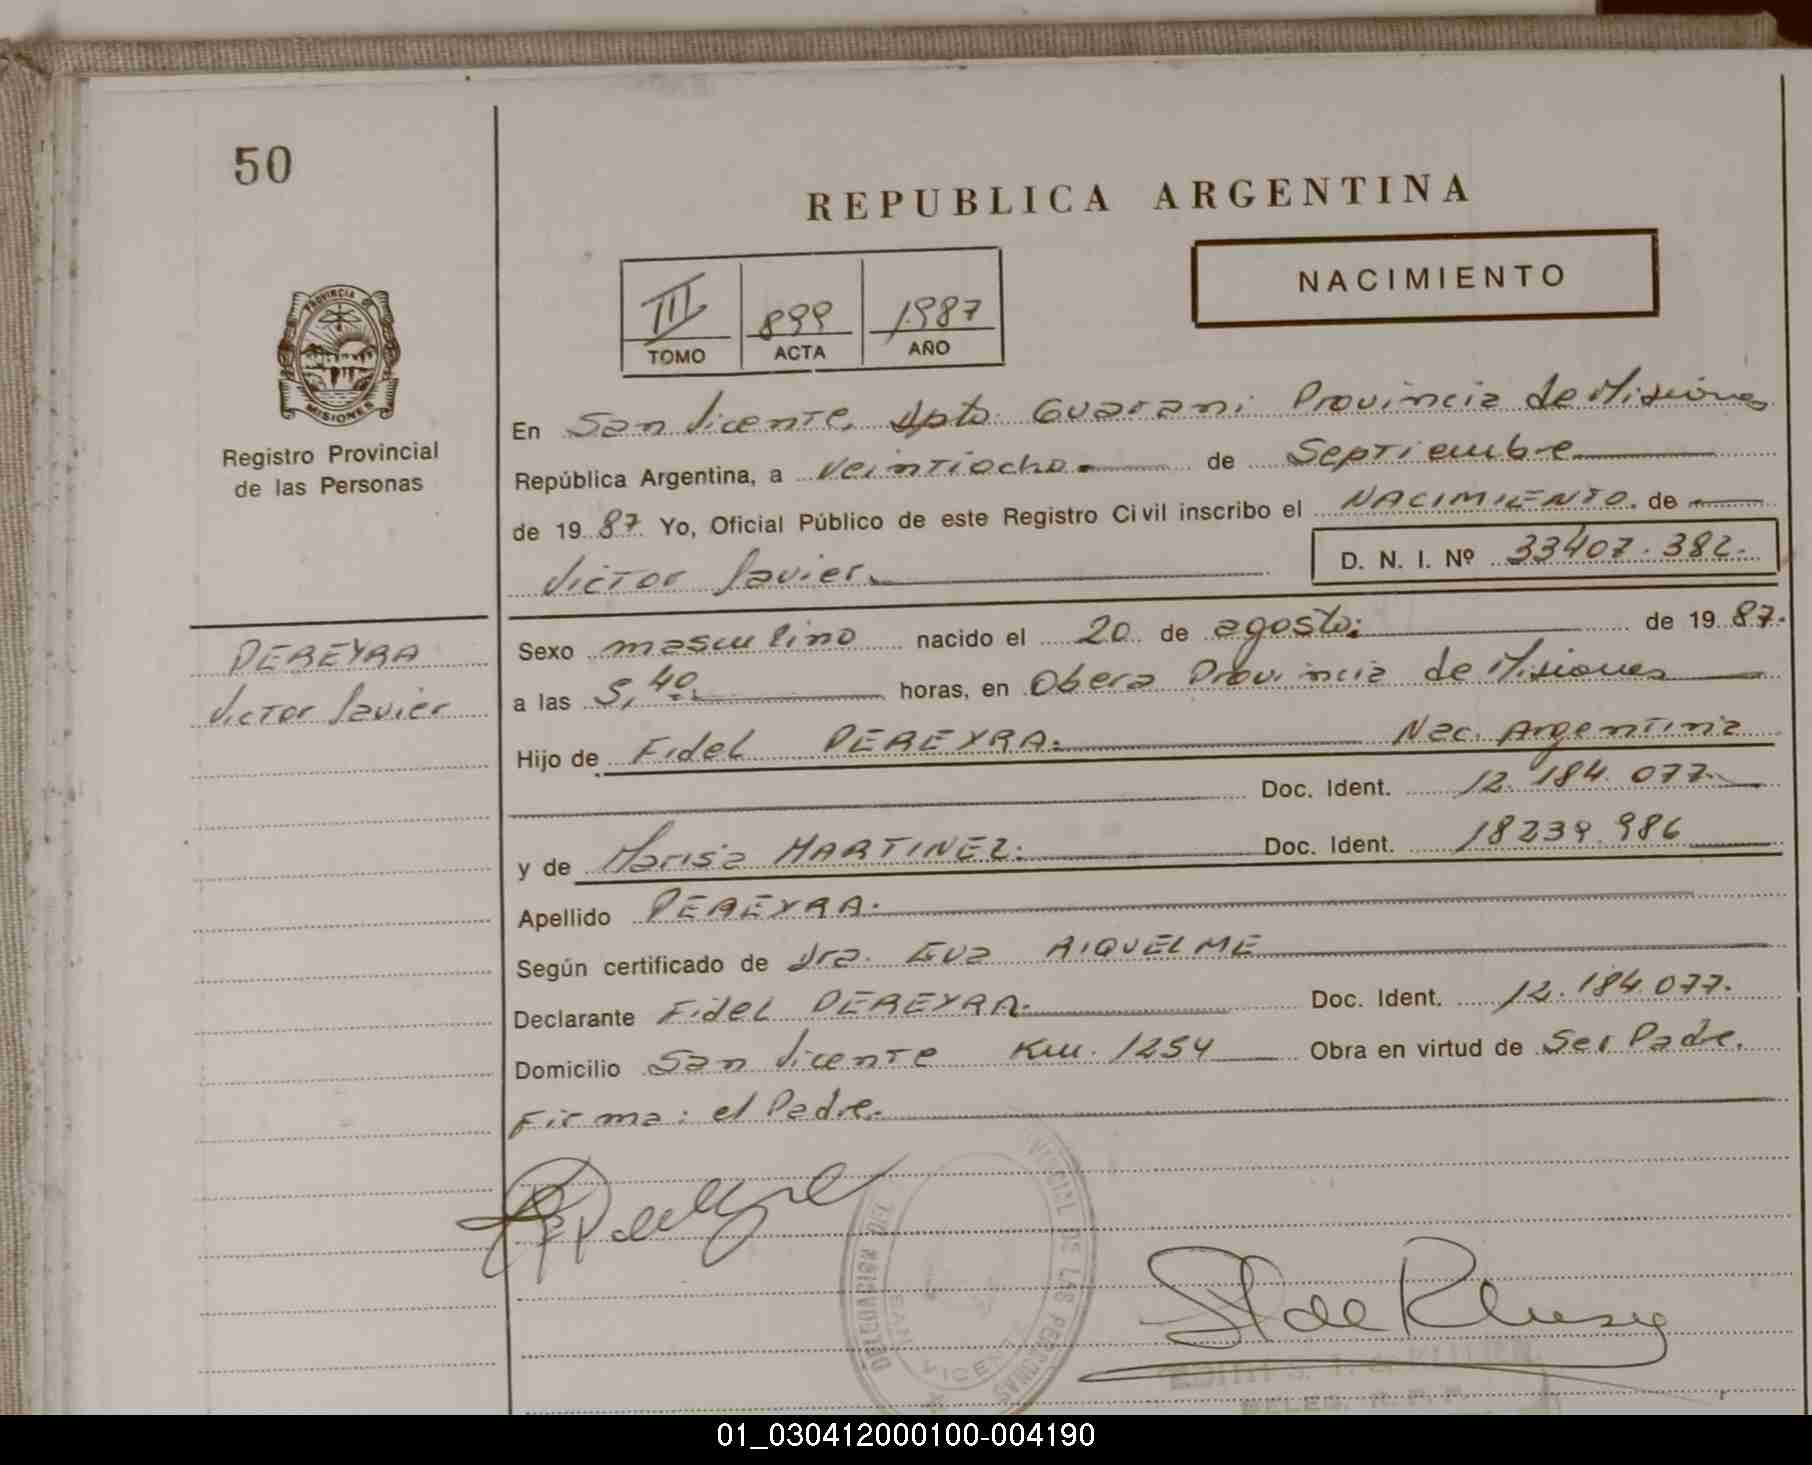 50
REPUBLICA ARGENTINA
NACIMIENTO
III 899 1987
TOMO ACTA AÑO
PROVINCIA DE
MISIONES
Registro Provincial
de las Personas
En San Vicente, Dpto. Guarani Provincia de Misiones
República Argentina, a Veintiocho de Septiembre
de 19 87 Yo, Oficial Público de este Registro Civil inscribo el NACIMIENTO. de
Victor Javier. D. N. I. Nº 33407.382.
PEREYRA
Victor Javier
Sexo masculino nacido el 20 de agosto: de 19 87.
a las 5,40. horas, en Obera Provincia de Misiones
Hijo de Fidel PEREYRA. Nac. Argentina
Doc. Ident. 12.184.077.
y de Marisa MARTINEZ. Doc. Ident. 18239.986
Apellido PEREYRA.
Según certificado de Dra. Eva RIQUELME
Declarante Fidel PEREYRA. Doc. Ident. 12.184.077.
Domicilio San Vicente Km. 1254 Obra en virtud de Ser Padre.
Firma: el Padre.
DELEGACION
DE LAS PERSONAS
SAN VICENTE
01_030412000100-004190